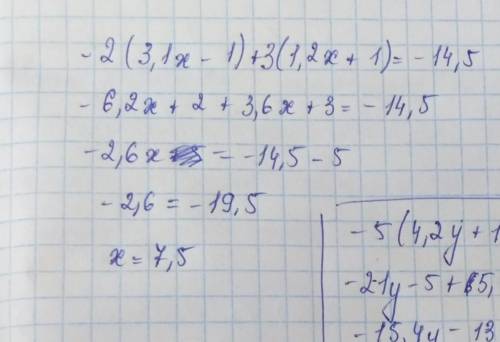 -2(3,1x - 1)+3(1,2x + 1)= -14,5
-6,2x + 2 + 3,6x + 3 = -14,5
-2,6x = -14,5 - 5
-2,6 = -19,5
x = 7,5
-5(4,2y + 1
-21y - 5 + 5,
-15,4y - 13